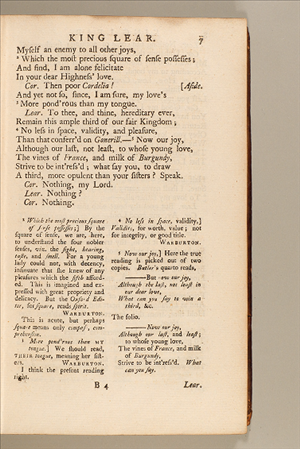 KING LEAR. 7
Myself an enemy to all other joys,
² Which the most precious square of sense possesses;
And find, I am alone felicitate
In your dear Highness' love.
Cor. Then poor Cordelia! [Aside.
And yet not so, since, I am sure, my love's
³ More pond'rous than my tongue.
Lear. To thee, and thine, hereditary ever,
Remain this ample third of our fair Kingdom;
⁴ No less in space, validity, and pleasure,
Than that conferr'd on Gonerill.—⁵ Now our joy,
Although our last, not least, to whose young love,
The vines of France, and milk of Burgundy,
Strive to be int'ress'd; what say you, to draw
A third, more opulent than your sisters? Speak.
Cor. Nothing, my Lord.
Lear. Nothing?
Cor. Nothing.
² Which the most precious square
of sense possesses;] By the
square of sense, we are, here,
to understand the four nobler
senses, viz. the sight, hearing,
taste, and smell. For a young
lady could not, with decency,
insinuate that she knew of any
pleasures which the fifth afford-
ed. This is imagined and ex-
pressed with great propriety and
delicacy. But the Oxford Edi-
tor, for square, reads spirit.
WARBURTON.
This is acute, but perhaps
square means only compass, com-
prehension.
³ More pond'rous than MY
tongue.] We should read,
THEIR tongue, meaning her sist-
ers. WARBURTON.
I think the present reading
right.
⁴ No less in space, validity,]
Validity, for worth, value; not
for integrity, or good title.
WARBURTON.
⁵ Now our joy,] Here the true
reading is picked out of two
copies. Butler's quarto reads,
——But now our joy,
Although the last, not least in
our dear love,
What can you say to win a
third, &c.
The folio,
——Now our joy,
Although our last, and least;
to whose young love,
The vines of France, and milk
of Burgundy,
Strive to be int'ress'd. What
can you say.
B 4 Lear.